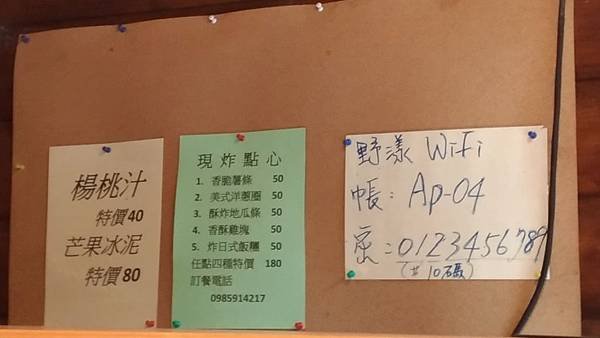 楊桃汁
特價40
芒果冰泥
特價80
現炸點心
1. 香脆薯條 50
2. 美式洋蔥圈 50
3. 酥炸地瓜條 50
4. 香酥雞塊 50
5. 炸日式飯糰 50
任點四種特價 180
訂餐電話
0985914217
野漾 WiFi
帳: Ap-04
密:0123456789
(共10碼)